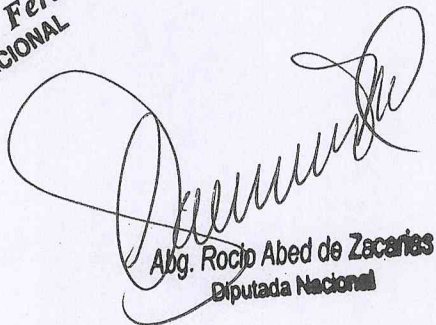 Fer
CIONAL
Abg. Rocio Abed de Zacarias
Diputada Nacional